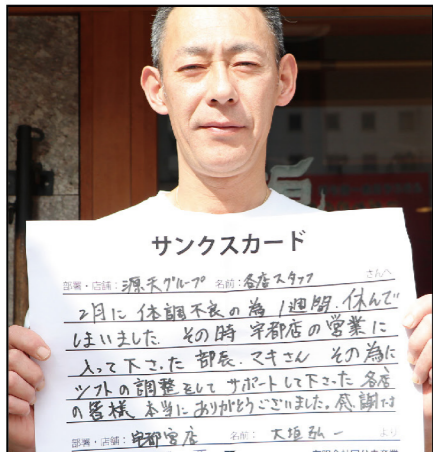 サンクスカード
部署・店舗:源天グループ 名前:各店スタッフ さんへ
2月に体調不良の為1週間、休んで
しまいました。その時宇都店の営業に
入って下さった部長、マキさん その為に
シフトの調整をして サポートして下さった各店
の皆様 本当にありがとうございました。感謝です
部署・店舗:宇都宮店 名前:大垣弘一 より